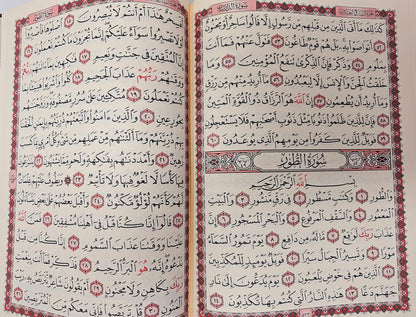 سُورَةُ الذَّارِيَاتِ
كَذَٰلِكَ مَآ أَتَى ٱلَّذِينَ مِن قَبْلِهِم مِّن رَّسُولٍ إِلَّا قَالُوا۟ سَاحِرٌ أَوْ مَجْنُونٌ
٥٢ أَتَوَاصَوْا۟ بِهِۦ بَلْ هُمْ قَوْمٌ طَاغُونَ ٥٣ فَتَوَلَّ عَنْهُمْ فَمَآ أَنتَ بِمَلُومٍ
٥٤ وَذَكِّرْ فَإِنَّ ٱلذِّكْرَىٰ تَنفَعُ ٱلْمُؤْمِنِينَ ٥٥ وَمَا
خَلَقْتُ ٱلْجِنَّ وَٱلْإِنسَ إِلَّا لِيَعْبُدُونِ ٥٦ مَآ أُرِيدُ مِنْهُم مِّن رِّزْقٍ
وَمَآ أُرِيدُ أَن يُطْعِمُونِ ٥٧ إِنَّ ٱللَّهَ هُوَ ٱلرَّزَّاقُ ذُو ٱلْقُوَّةِ ٱلْمَتِينُ
٥٨ فَإِنَّ لِلَّذِينَ ظَلَمُوا۟ ذَنُوبًا مِّثْلَ ذَنُوبِ أَصْحَٰبِهِمْ فَلَا يَسْتَعْجِلُونِ
٥٩ فَوَيْلٌ لِّلَّذِينَ كَفَرُوا۟ مِن يَوْمِهِمُ ٱلَّذِى يُوعَدُونَ ٦٠
سُورَةُ ٱلطُّورِ
بِسْمِ ٱللَّهِ ٱلرَّحْمَٰنِ ٱلرَّحِيمِ
وَٱلطُّورِ ١ وَكِتَٰبٍ مَّسْطُورٍ ٢ فِى رَقٍّ مَّنشُورٍ ٣ وَٱلْبَيْتِ
ٱلْمَعْمُورِ ٤ وَٱلسَّقْفِ ٱلْمَرْفُوعِ ٥ وَٱلْبَحْرِ ٱلْمَسْجُورِ ٦ إِنَّ
عَذَابَ رَبِّكَ لَوَٰقِعٌ ٧ مَّا لَهُۥ مِن دَافِعٍ ٨ يَوْمَ تَمُورُ ٱلسَّمَآءُ مَوْرًا
٩ وَتَسِيرُ ٱلْجِبَالُ سَيْرًا ١٠ فَوَيْلٌ يَوْمَئِذٍ لِّلْمُكَذِّبِينَ ١١
ٱلَّذِينَ هُمْ فِى خَوْضٍ يَلْعَبُونَ ١٢ يَوْمَ يُدَعُّونَ إِلَىٰ نَارِ
جَهَنَّمَ دَعًّا ١٣ هَٰذِهِ ٱلنَّارُ ٱلَّتِى كُنتُم بِهَا تُكَذِّبُونَ ١٤
أَفَسِحْرٌ هَٰذَآ أَمْ أَنتُمْ لَا تُبْصِرُونَ ١٥ ٱصْلَوْهَا فَٱصْبِرُوٓا۟
أَوْ لَا تَصْبِرُوا۟ سَوَآءٌ عَلَيْكُمْ إِنَّمَا تُجْزَوْنَ مَا كُنتُمْ تَعْمَلُونَ ١٦
إِنَّ ٱلْمُتَّقِينَ فِى جَنَّٰتٍ وَنَعِيمٍ ١٧ فَٰكِهِينَ بِمَآ ءَاتَىٰهُمْ رَبُّهُمْ
وَوَقَىٰهُمْ رَبُّهُمْ عَذَابَ ٱلْجَحِيمِ ١٨ كُلُوا۟ وَٱشْرَبُوا۟ هَنِيٓـًٔا بِمَا
كُنتُمْ تَعْمَلُونَ ١٩ مُتَّكِـِٔينَ عَلَىٰ سُرُرٍ مَّصْفُوفَةٍ وَزَوَّجْنَٰهُم
بِحُورٍ عِينٍ ٢٠ وَٱلَّذِينَ ءَامَنُوا۟ وَٱتَّبَعَتْهُمْ ذُرِّيَّتُهُم بِإِيمَٰنٍ أَلْحَقْنَا بِهِمْ
ذُرِّيَّتَهُمْ وَمَآ أَلَتْنَٰهُم مِّنْ عَمَلِهِم مِّن شَىْءٍ كُلُّ ٱمْرِئٍۭ بِمَا كَسَبَ رَهِينٌ
٢١ وَأَمْدَدْنَٰهُم بِفَٰكِهَةٍ وَلَحْمٍ مِّمَّا يَشْتَهُونَ ٢٢ يَتَنَٰزَعُونَ
فِيهَا كَأْسًا لَّا لَغْوٌ فِيهَا وَلَا تَأْثِيمٌ ٢٣ وَيَطُوفُ عَلَيْهِمْ غِلْمَانٌ
لَّهُمْ كَأَنَّهُمْ لُؤْلُؤٌ مَّكْنُونٌ ٢٤ وَأَقْبَلَ بَعْضُهُمْ عَلَىٰ بَعْضٍ يَتَسَآءَلُونَ ٢٥
قَالُوٓا۟ إِنَّا كُنَّا قَبْلُ فِىٓ أَهْلِنَا مُشْفِقِينَ ٢٦ فَمَنَّ ٱللَّهُ
عَلَيْنَا وَوَقَىٰنَا عَذَابَ ٱلسَّمُومِ ٢٧ إِنَّا كُنَّا مِن قَبْلُ
نَدْعُوهُ إِنَّهُۥ هُوَ ٱلْبَرُّ ٱلرَّحِيمُ ٢٨ فَذَكِّرْ فَمَآ أَنتَ بِنِعْمَتِ
رَبِّكَ بِكَاهِنٍ وَلَا مَجْنُونٍ ٢٩ أَمْ يَقُولُونَ شَاعِرٌ نَّتَرَبَّصُ بِهِۦ رَيْبَ
ٱلْمَنُونِ ٣٠ قُلْ تَرَبَّصُوا۟ فَإِنِّى مَعَكُم مِّنَ ٱلْمُتَرَبِّصِينَ ٣١